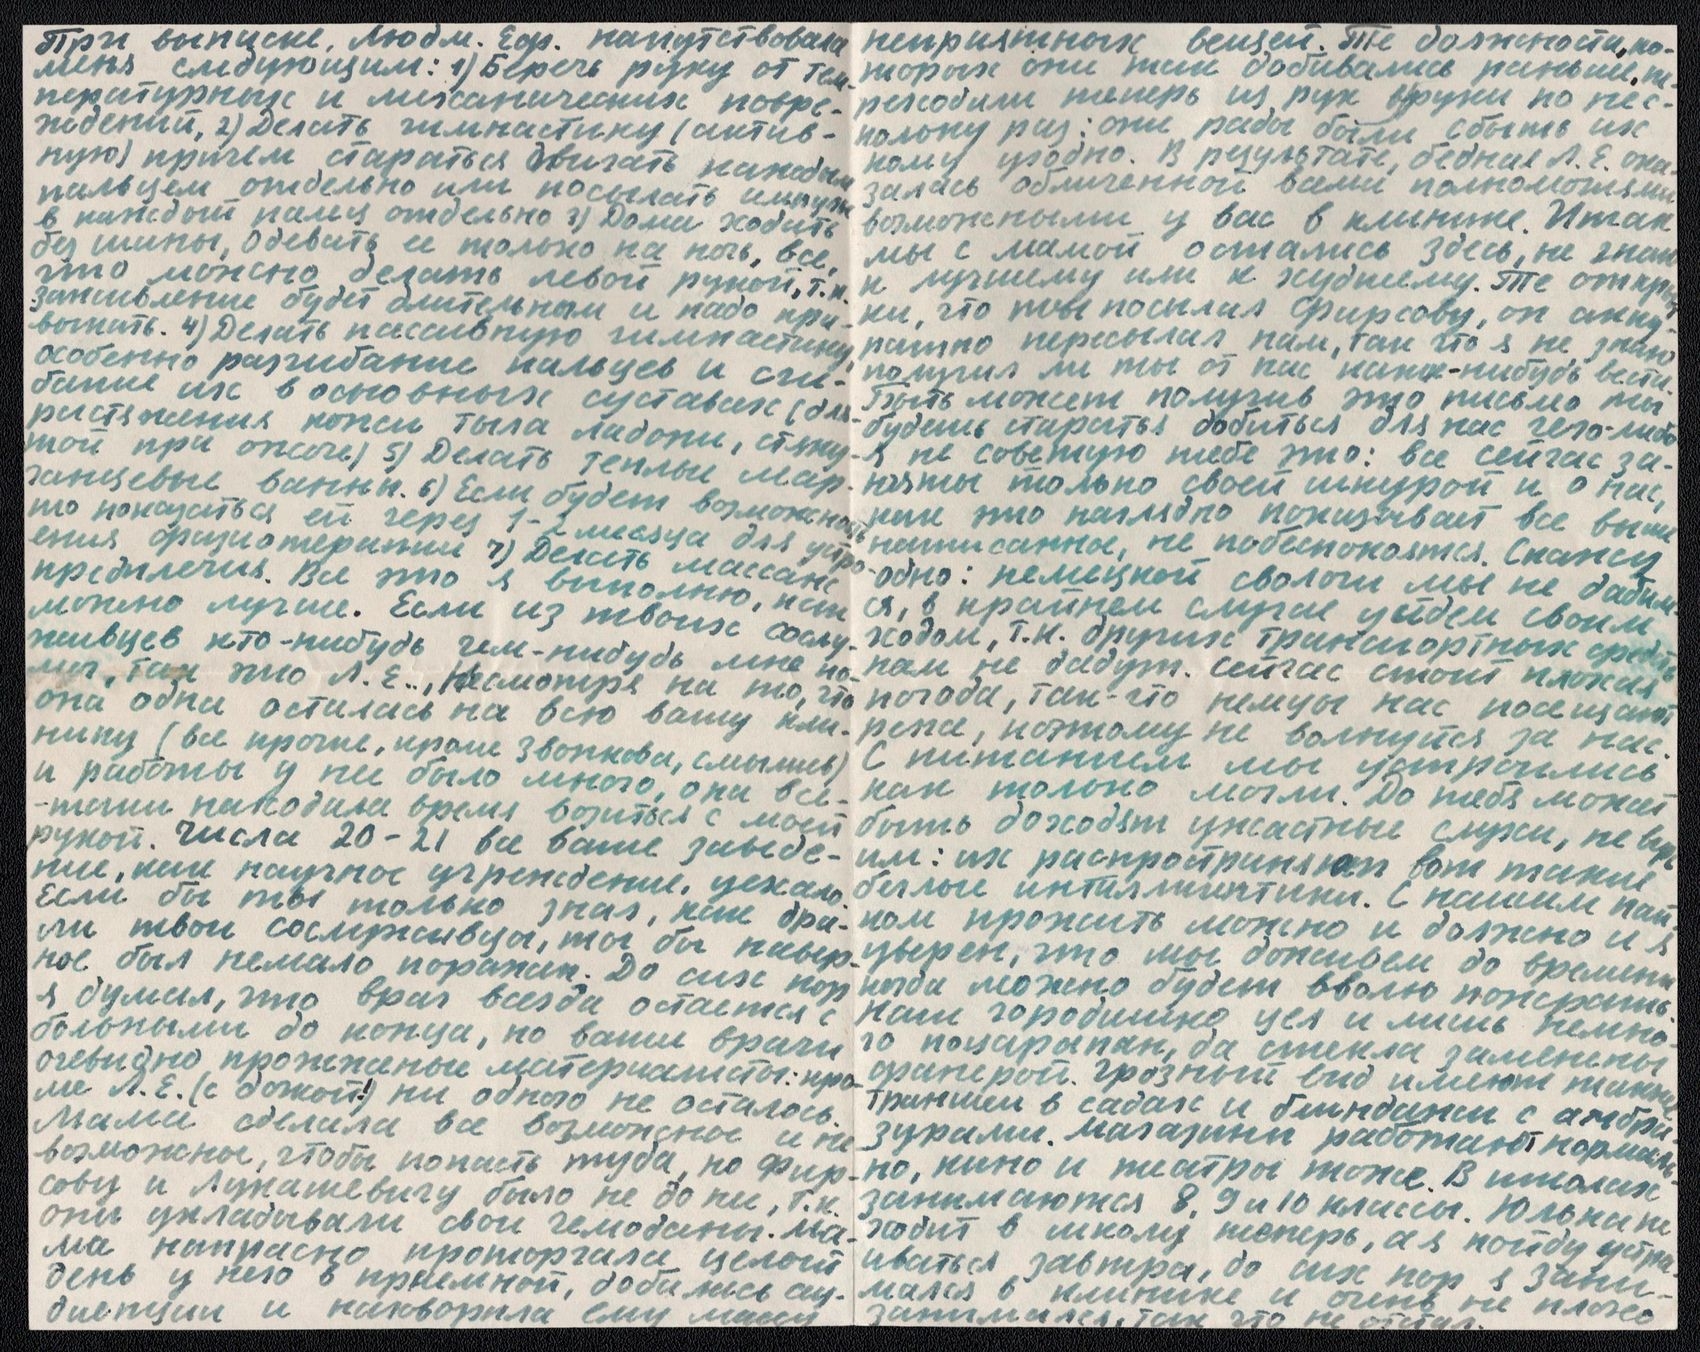 При выписке, Людм. Еф. напутствовала
меня следующим: 1) Беречь руку от тем-
пературных и механических повре-
ждений, 2) Делать гимнастику (актив-
ную) причем стараться двигать каждым
пальцем отдельно или посылать импульс
в каждый палец отдельно 3) Дома ходить
без шины, Одевать ее только на ночь, все,
что можно делать левой рукой, т.к.
заживление будет длительным и надо при-
выкать. 4) Делать пассивную гимнастику,
особенно разгибание пальцев и сги-
бание их в основных суставах (для
растяжения кожи тыла ладони, стяну-
той при ожоге) 5) Делать теплые мар-
ганцевые ванны. 6) Если будет возможность
то показаться ей через 1-2 месяца для устро-
ения физиотерапии 7) Делать массаж
предплечия. Все это я выполню, как
можно лучше. Если из твоих сослу-
живцев кто-нибудь чем-нибудь мне по-
мог, так это Л. Е., Несмотря на то, что
она одна осталась на всю вашу кли-
нику (все прочие, кроме Звонкова, смылись)
и работы у нее было много, она все-
-таки находила время возиться с моей
рукой. Числа 20-21 все ваше заведе-
ние, как научное учреждение, уехало.
Если бы ты только знал, как дра-
ли твои сослуживцы, ты бы навер-
ное был немало поражен. До сих пор
я думал, что врач всегда остается с
больными до конца, но ваши врачи
очевидно прожженные материалисты: кро-
ме Л. Е. (с дочкой!) ни одного не осталось.
Мама сделала все возможное и не
возможное, чтобы попасть туда, но Фир-
сову и Лукашевичу было не до нее, т.к.
они укладывали свои чемоданы. Ма-
ма напрасно проторчала целый
день у него в приемной, добилась ау-
диенции и наговорила ему массу
неприятных вещей. Те должности, ко-
торых они так добивались раньше, пе-
реходили теперь из рук в руки по нес-
кольку раз: они рады были сбыть их
кому угодно. В результате, бедная Л. Е. ока-
залась облеченной всеми полномочиями
возможными у вас в клинике. Итак
мы с мамой остались здесь, не знаю
к лучшему или к худшему. Те открыт-
ки, что ты посылал Фирсову, он акку-
ратно пересылал нам, так что я не знаю
получил ли ты от нас какие-нибудь вести.
Быть может получив это письмо ты
будешь стараться добиться для нас чего-либо
-я не советую тебе это: все сейчас за-
няты только своей шкурой и о нас,
как это наглядно показывает все выше
написанное, не побеспокоятся. Скажу
одно: немецкой сволочи мы не дадим-
ся, в крайнем случае уйдем своим
ходом, т.к. других транспортных средств
нам не дадут. Сейчас стоит плохая
погода, так-что немцы нас посещают
реже, поэтому не волнуйся за нас.
С питанием мы устроились
как только могли. До тебя может
быть доходят ужасные слухи, не верь
им: их распространяют вот такие
беглые интеллигентики. С нашим пай-
ком прожить можно и должно и я
уверен, что мы доживем до времени
когда можно будет вволю пожрать.
Наш городишко цел и лишь немно-
го поцарапан, да стекла заменены
фанерой. Грозный вид имеют также
траншеи в садах и блиндажи с амбра-
зурами. Магазины работают нормаль-
но, кино и театры тоже. В школах
занимаются 8, 9 и 10 классы. Юлька не
ходит в школу теперь, а я пойду устра-
иваться завтра, до сих пор я зани-
мался в клинике и очень не плохо
занимался, так что не отстал.